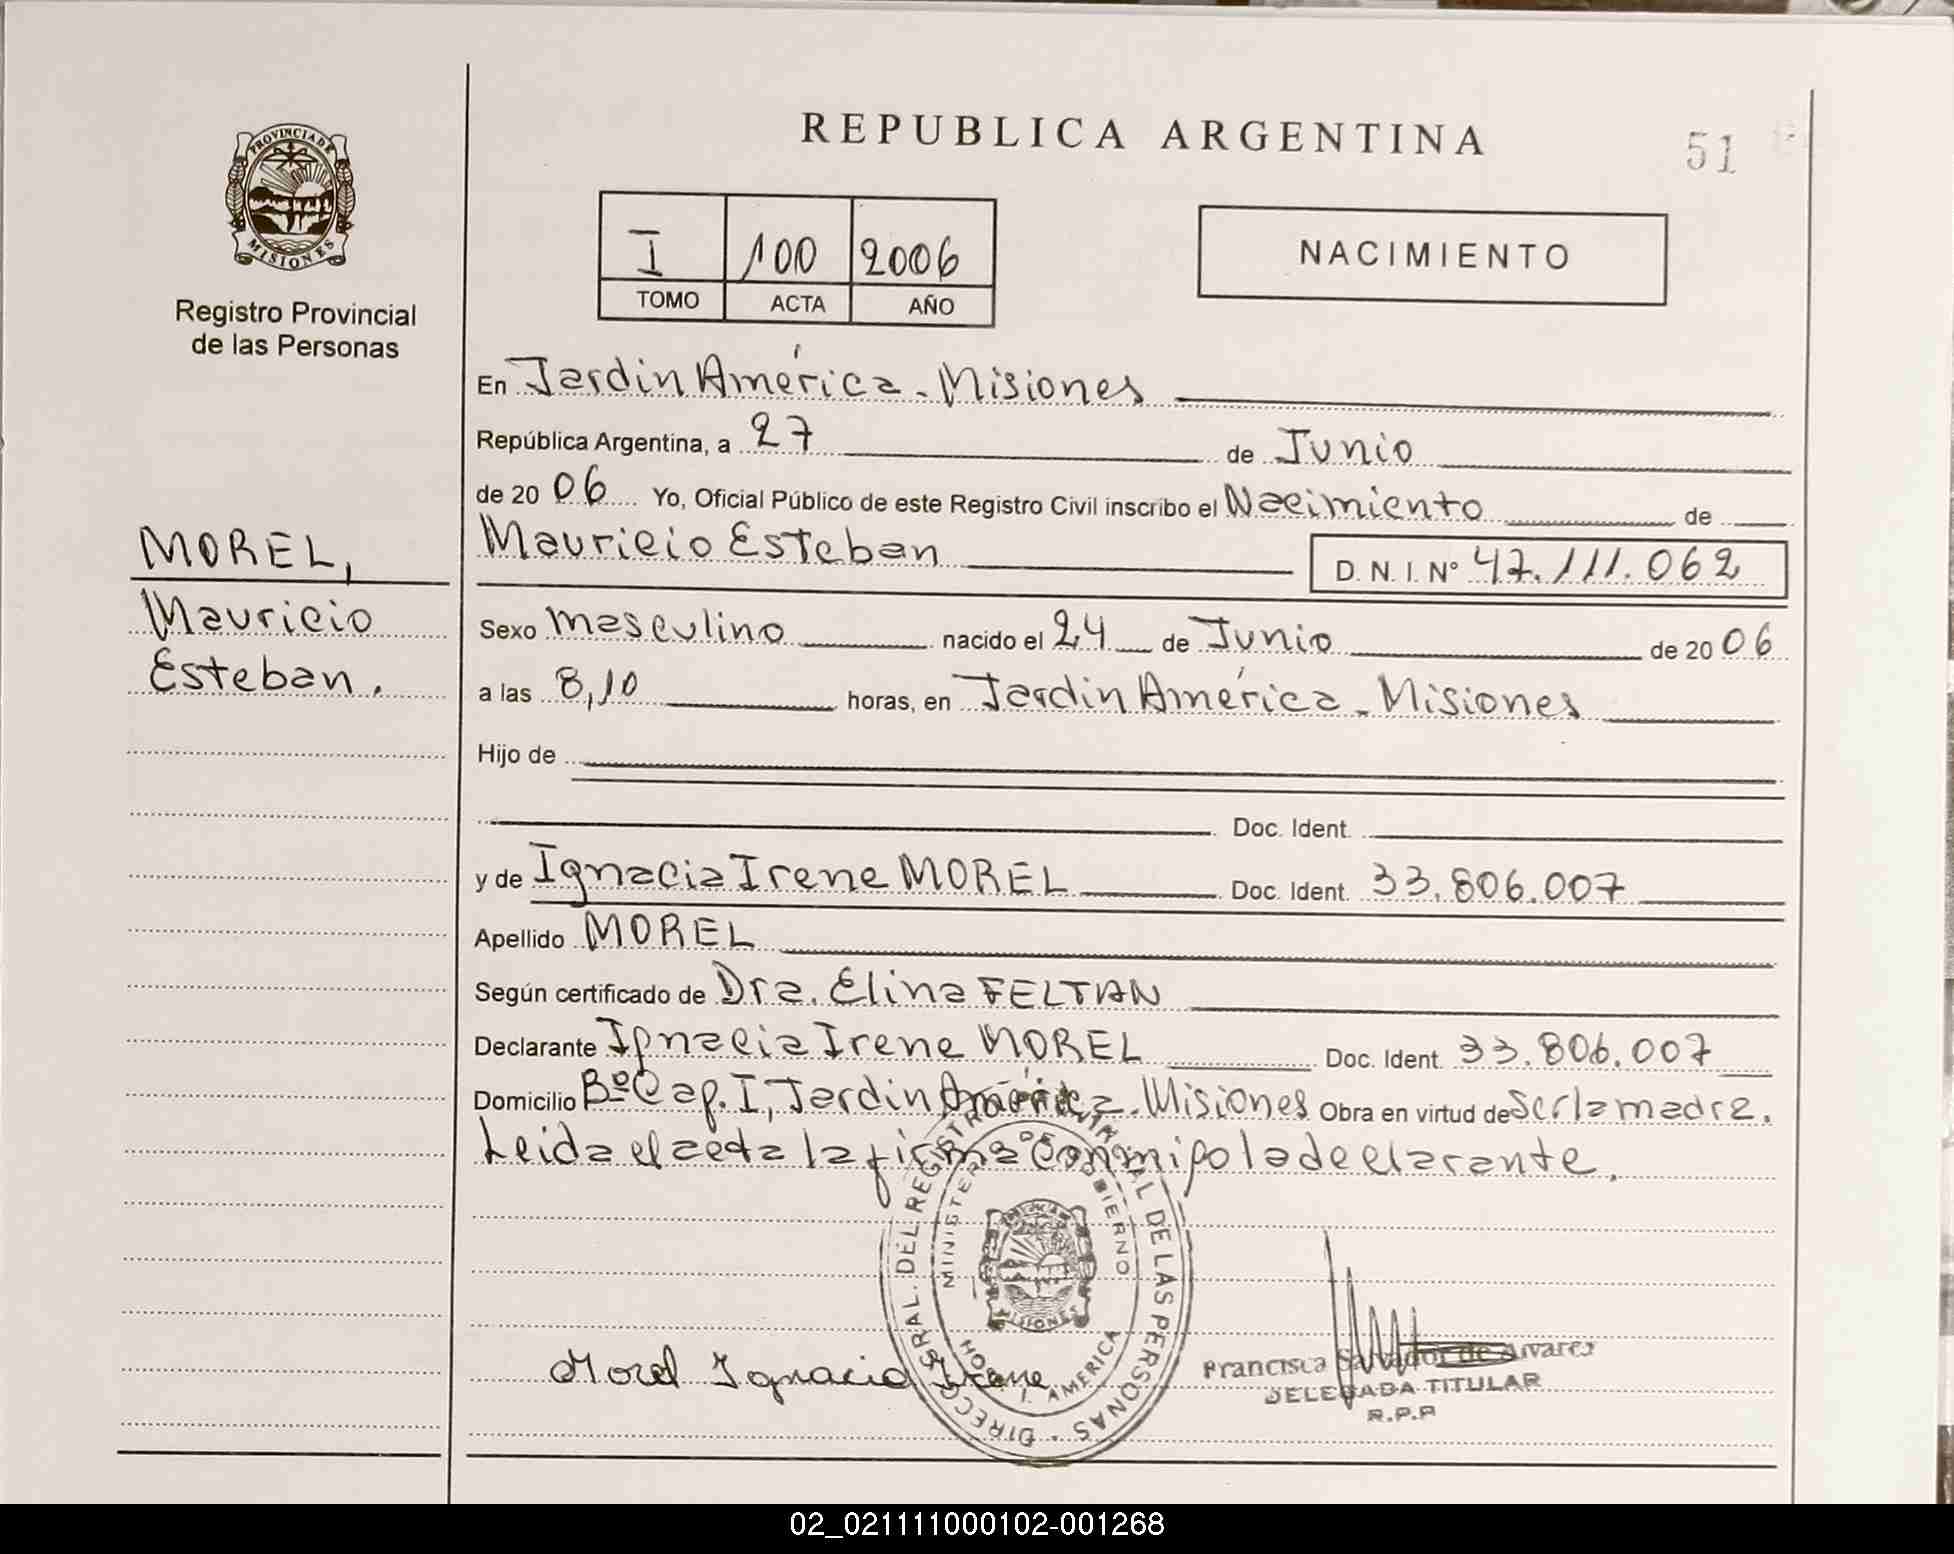 PROVINCIA DE
MISIONES
Registro Provincial
de las Personas
MOREL,
Mauricio
Esteban.
REPUBLICA ARGENTINA
51
I 100 2006
TOMO ACTA AÑO
NACIMIENTO
En Jardin América - Misiones
República Argentina, a 27 de Junio
de 20 06 Yo, Oficial Público de este Registro Civil inscribo el Nacimiento de
Mauricio Esteban D. N. I. N° 47.111.062
Sexo masculino nacido el 24 de Junio de 20 06
a las 8,10 horas, en Jardin América - Misiones
Hijo de
Doc. Ident.
y de Ignacia Irene MOREL Doc. Ident. 33.806.007
Apellido MOREL
Según certificado de Dra. Elina FELTAN
Declarante Ignacia Irene MOREL Doc. Ident. 33.806.007
Domicilio Bº Cap. I, Jardin América - Misiones Obra en virtud de Ser la madre.
Leida el acta la firma conmigo la declarante.
DIRECC. GRAL. DEL REGISTRO PROVINCIAL DE LAS PERSONAS
MINISTERIO DE GOBIERNO
MISIONES
J. AMERICA
Morel Ignacia Irene
Francisca Salvador de Alvarez
DELEGADA TITULAR
R.P.P
02_021111000102-001268